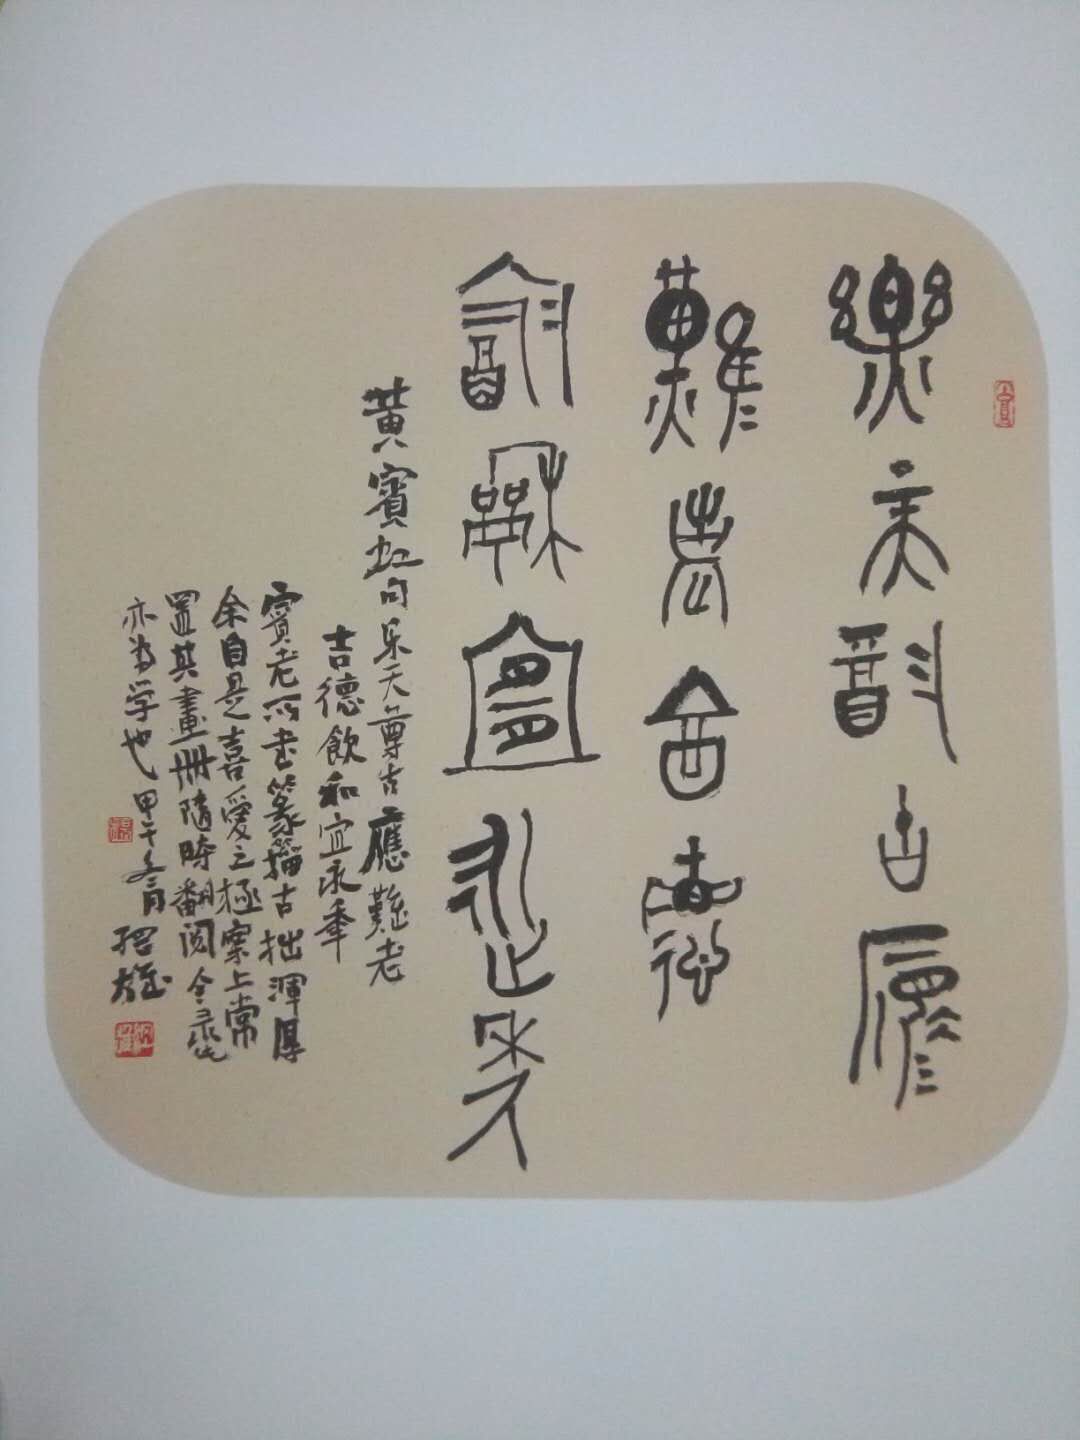 樂天尊古應
難老吉德
飲和宜永年
黄賓虹句乐天尊古應難老
吉德飲和宜永年
賓老所书篆籀古拙渾厚
余自是喜愛之極案上常
置其畫册隨時翻阅今录此
亦为学也甲午冬月